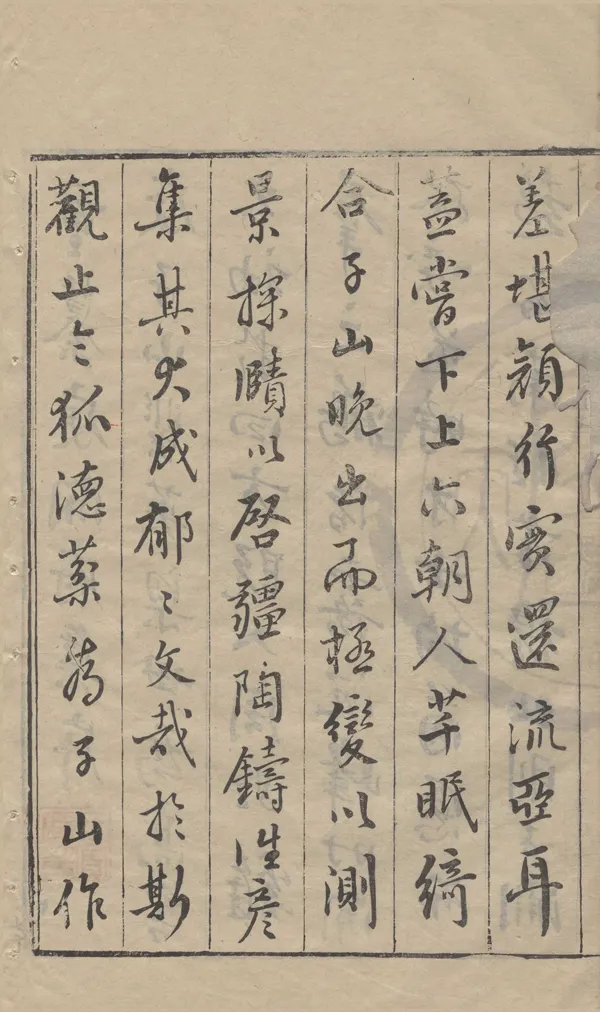 差堪顔行實還流亞耳
蓋嘗下上六朝人芊眠綺
合子山晚出而極變以測
景探賾以啓疆陶鑄徃彦
集其大成郁〻文哉於斯
觀止令狐德棻為子山作